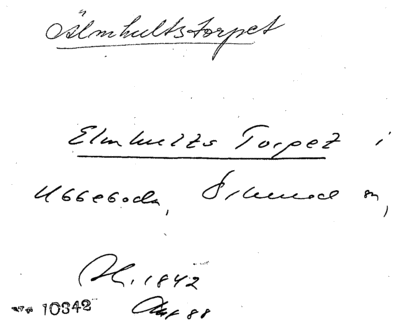 Älmhultstorpet
Elmhults Torpet i
Ubbeboda, Örkened sn,
Ak. 1842
10342